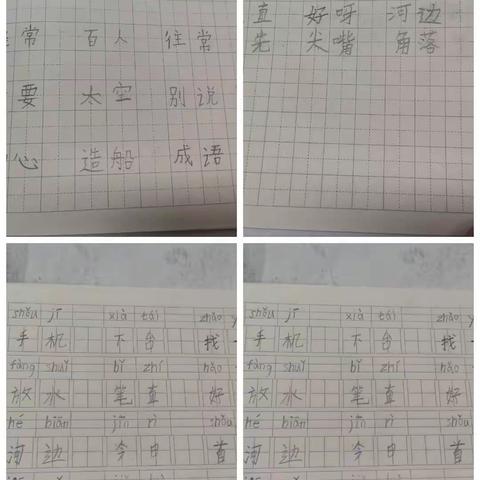 常 百人 往常
要 太空 别说
心 造船 成语
直 好呀 河边
先 尖嘴 角落
shǒu jī xià tái zhǎo
手机 下台 找
fàng shuǐ bǐ zhí hǎo
放水 笔直 好
hé biān jīn rì shǒu
河边 今日 首
shǒu jī xià tái zhǎo y
手机 下台 找
fàng shuǐ bǐ zhí hǎo
放水 笔直 好
hé biān jīn rì shǒu
河边 今日 首